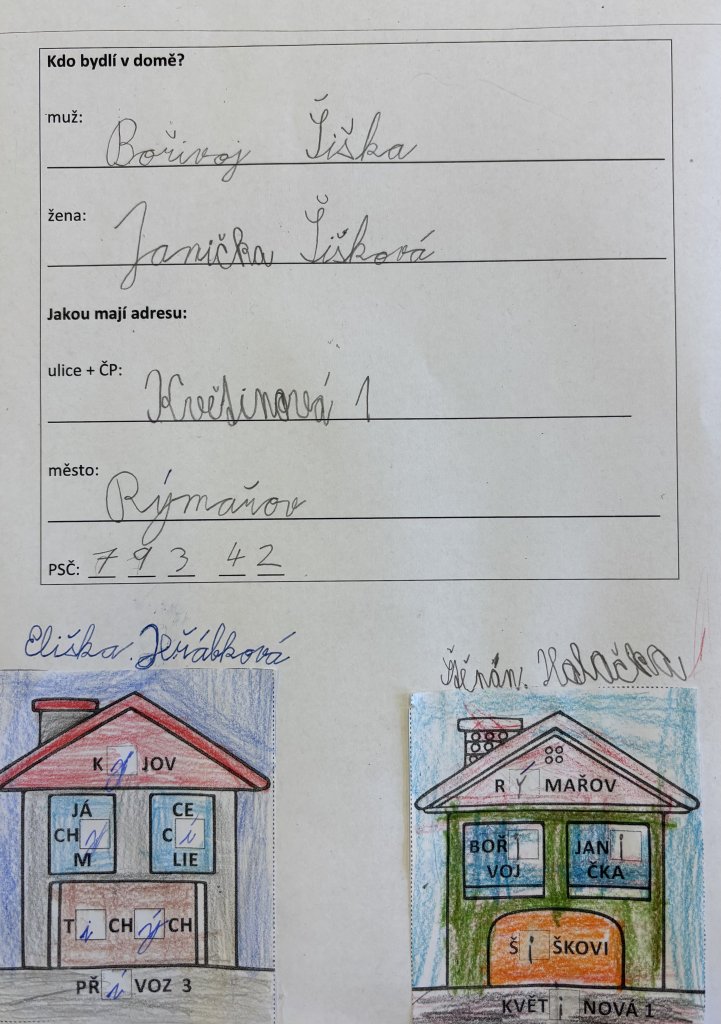 Kdo bydlí v domě?
muž:
Bořivoj Šiška
žena:
Janička Šišková
Jakou mají adresu:
ulice + ČP:
Květinová 1
město:
Rýmařov
PSČ: 7 9 3 4 2
Eliška Jeřábková
Halačka
K y JOV
JÁ
CH y
M
CE
C i
LIE
T i CH ý CH
PŘ í VOZ 3
R ý MAŘOV
BOŘ i
VOJ
JAN i
ČKA
Š i ŠKOVI
KVĚT i NOVÁ 1